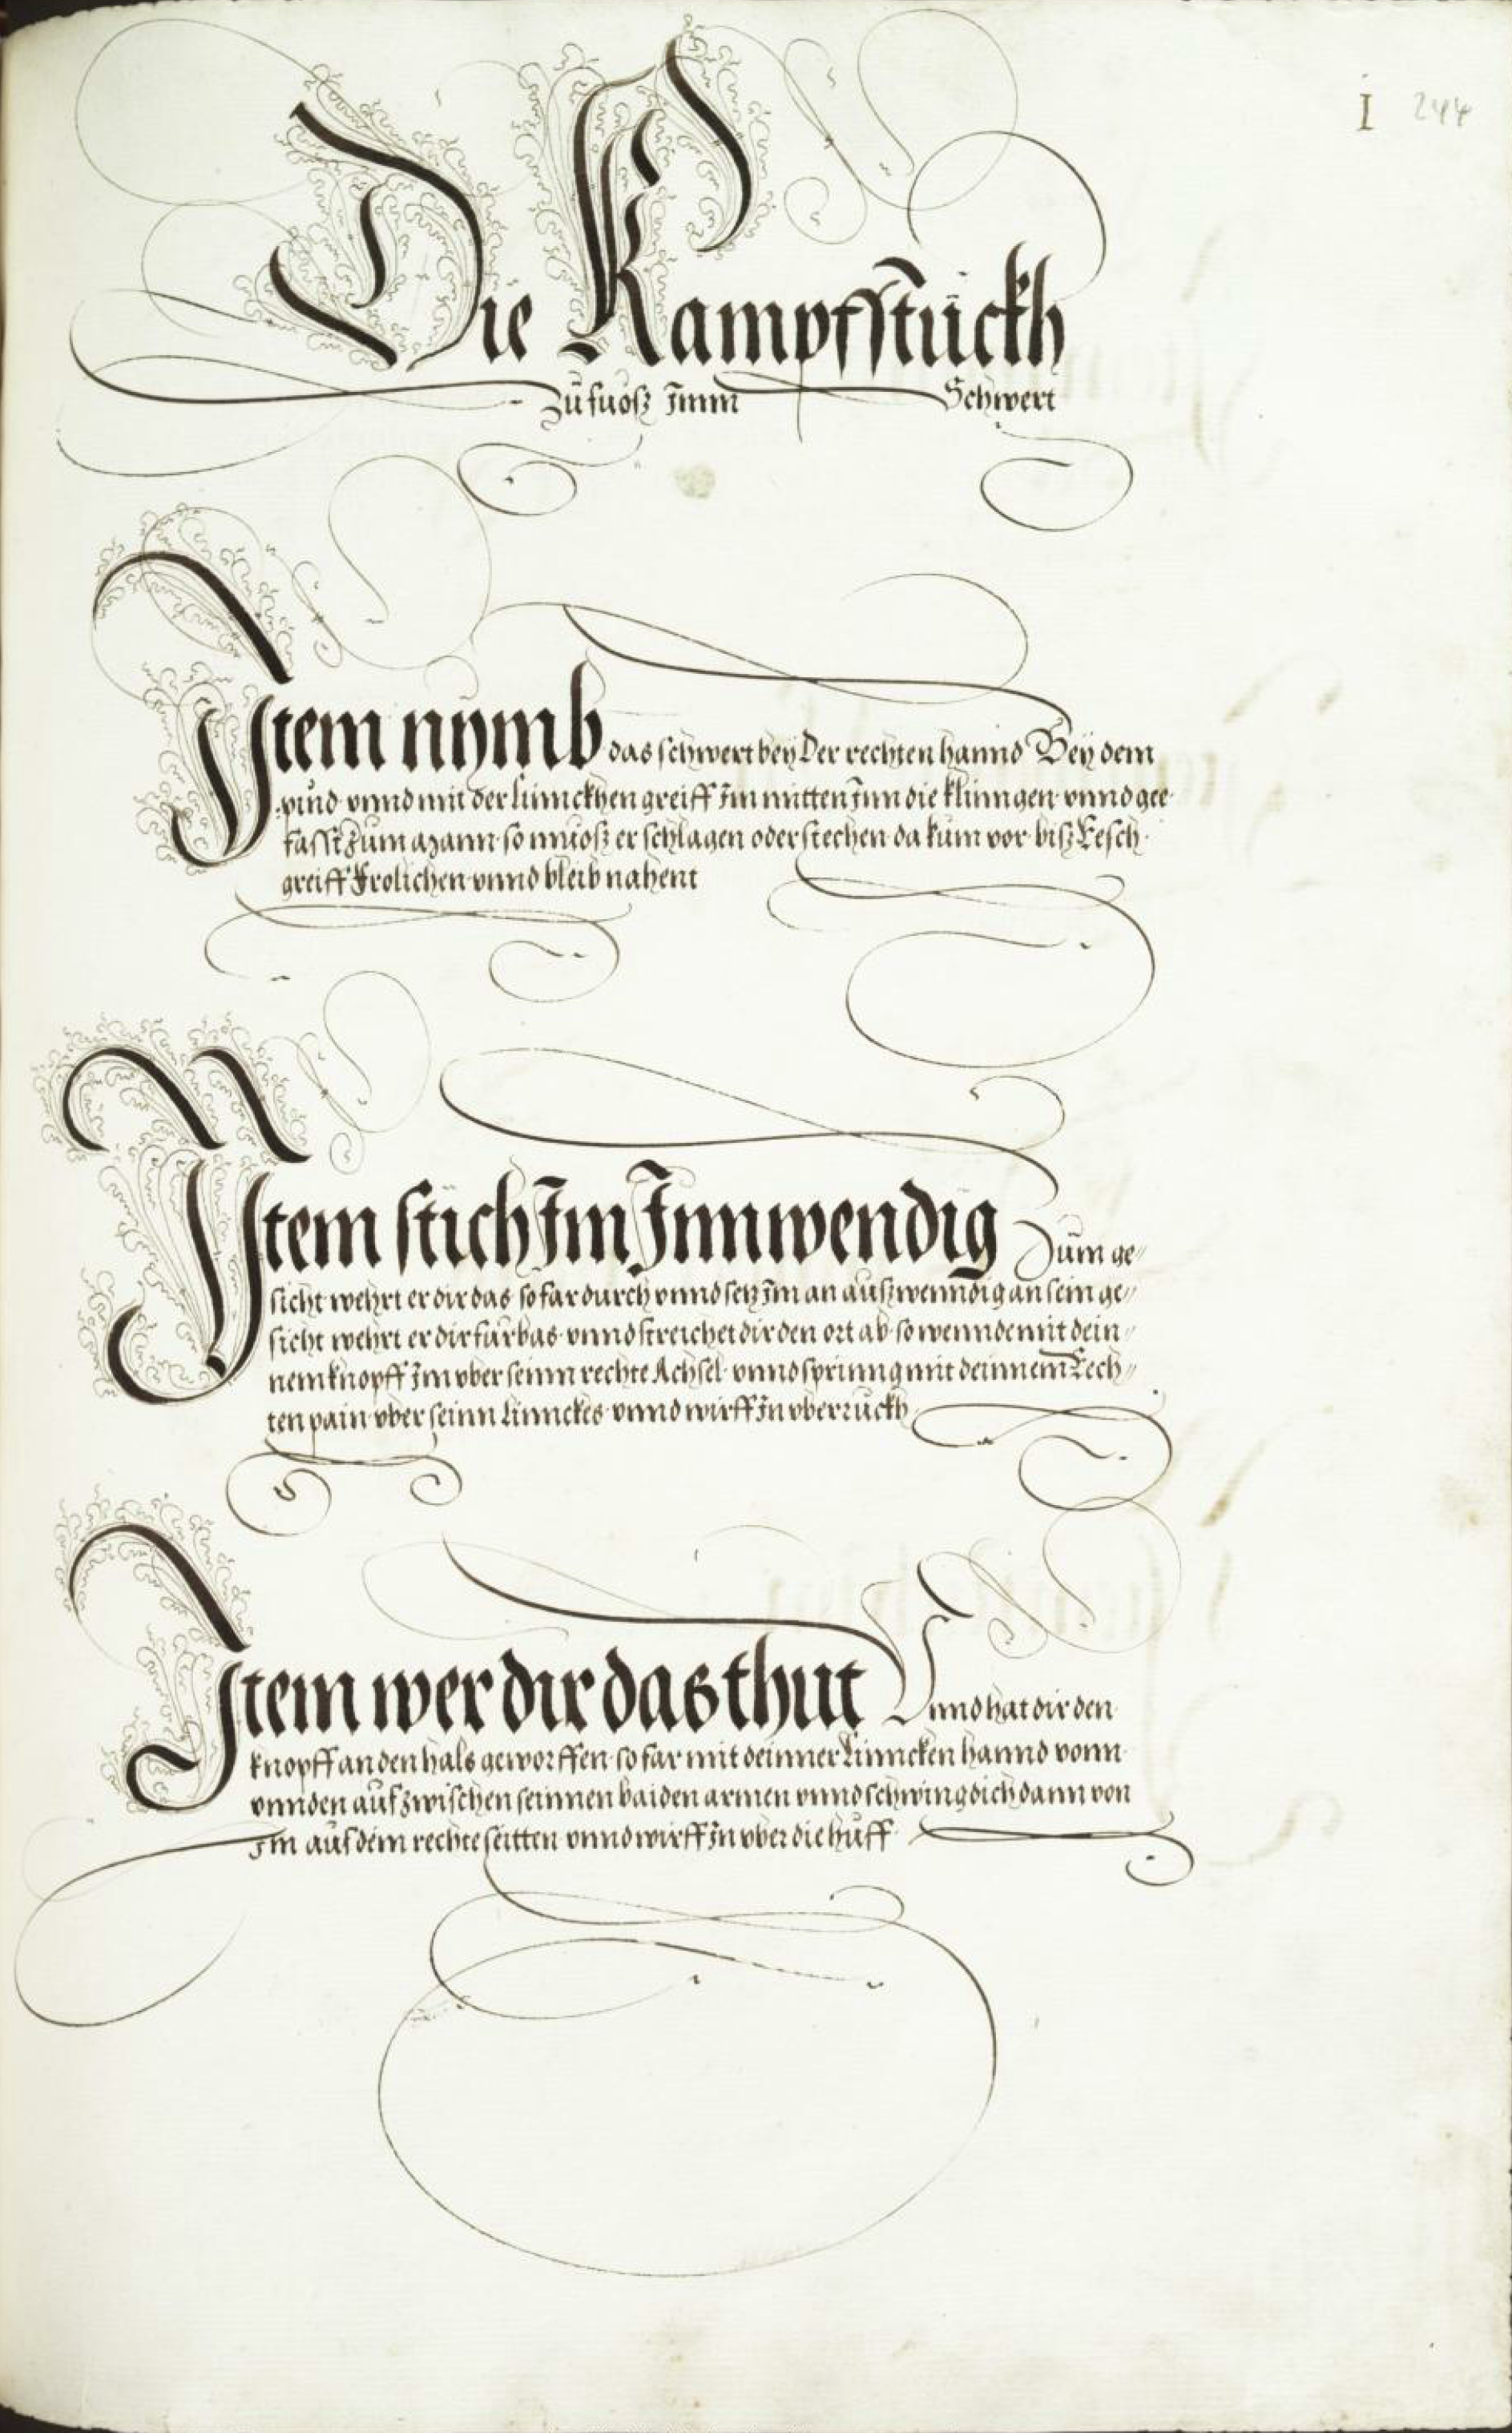 I 244
Die Kampfstückh
Zü fuosz Imm Schwert
Item nymb das schwert bey Der rechten hannd Bey dem
pind vnnd mit der linnckhen greiff Im mitten Inn die klinngen vnnd gee
fasst Zum man so muosz er schlagen oder stechen da kum vor bisz Resch
greiff Frolichen vnnd bleib nahent
Item stich Im Innwendig Zum ge„
sicht wehrt er dir das so far durch vnnd setz Im an ausz wenndig an sein ge„
sicht wehrt er dir fürbas vnnd streichet dir den ort ab so wennde mit dein„
nem knopff Im vber seinn rechte Achsel vnnd sprinng mit deinnem Rech„
ten pain vber seinn Linnckes vnnd wirff In vber rückh
Item wer dir das thut Vnnd hat dir den
knopff an den hals geworffen so far mit deinner Linncken hannd vonn
vnnden auf zwischen seinnen baiden armen vnnd schwing dich dann von
Im auf dem rechte seitten vnnd wirff In vber die hüff